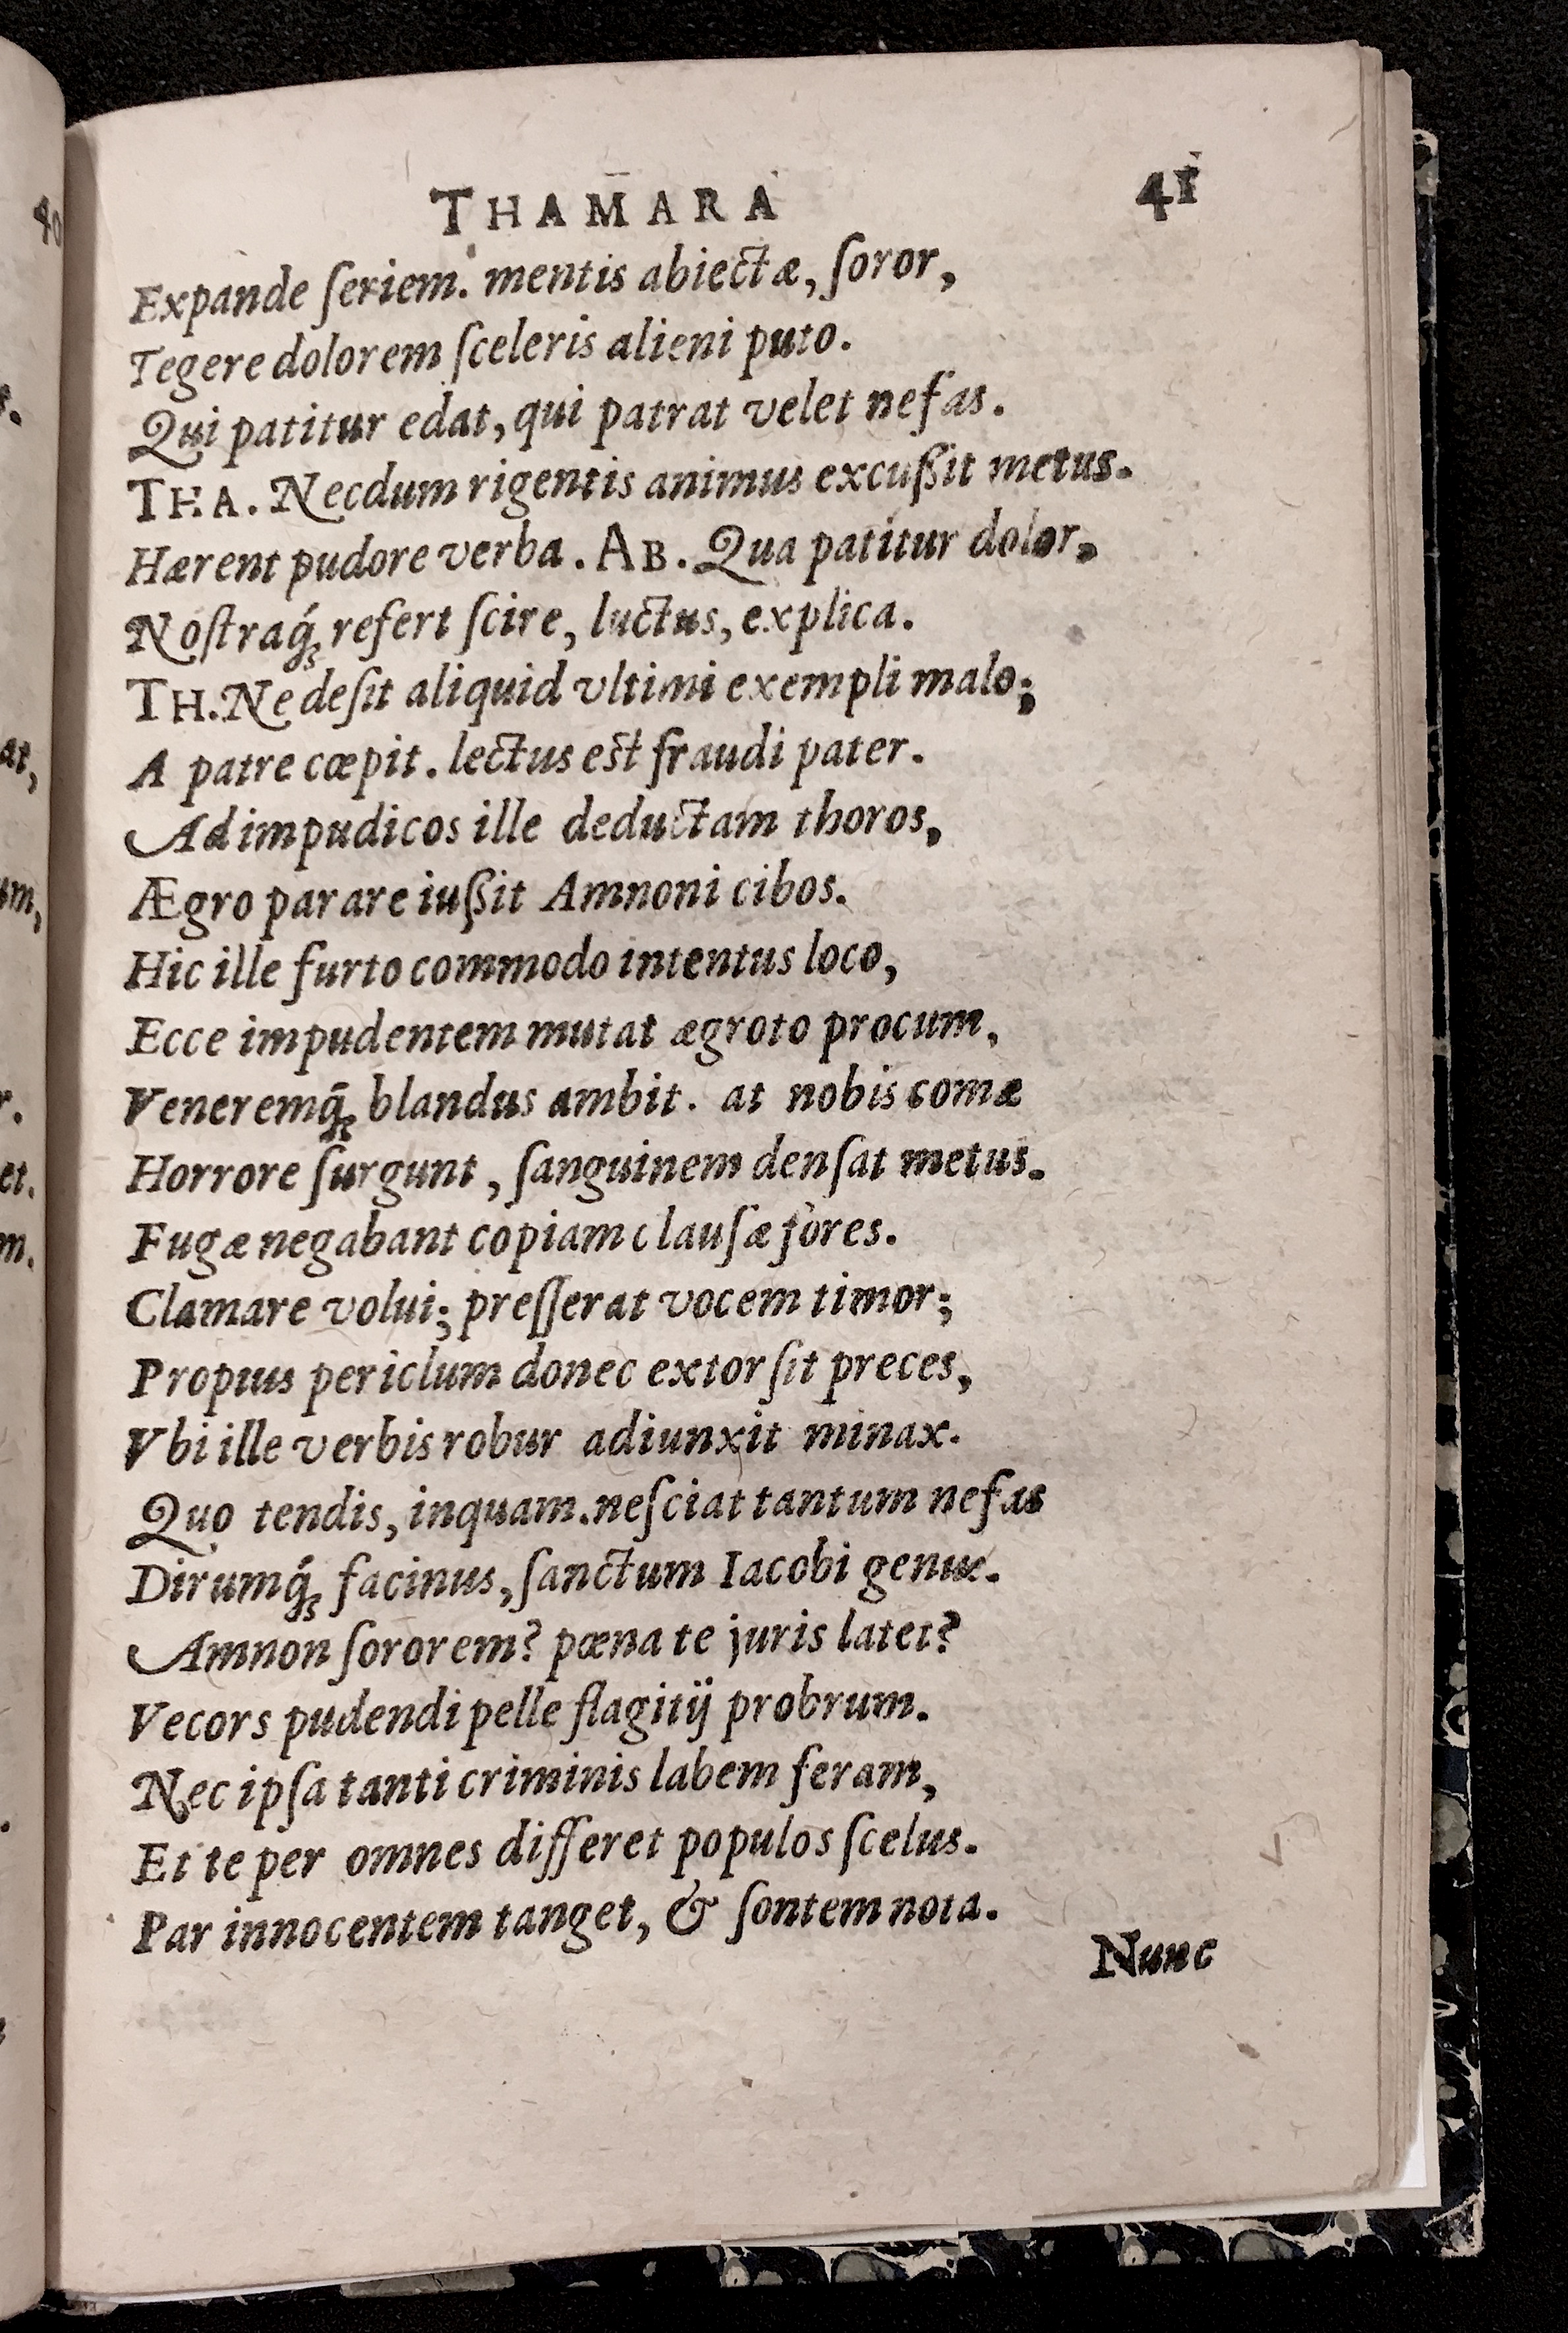 THAMARA 41
Expande ſeriem. mentis abiectæ, ſoror,
Tegere dolorem ſceleris alieni puto.
Qui patitur edat, qui patrat velet nefas.
THA. Necdum rigentis animus excuſſit metus.
Hærent pudore verba. AB. Qua patitur dolor,
Noſtraq́; refert ſcire, luctus, explica.
TH. Ne deſit aliquid vltimi exempli malo;
A patre cœpit. lectus est fraudi pater.
Ad impudicos ille deductam thoros,
Ægro parare iuſſit Amnoni cibos.
Hic ille furto commodo intentus loco,
Ecce impudentem mutat ægroto procum,
Veneremq́; blandus ambit. at nobis comæ
Horrore ſurgunt, ſanguinem denſat metus.
Fugæ negabant copiam clauſæ fores.
Clamare volui; preſſerat vocem timor;
Propius periclum donec extorſit preces,
Vbi ille verbis robur adiunxit minax.
Quo tendis, inquam. neſciat tantum nefas
Dirumq́; facinus, ſanctum Iacobi genus.
Amnon ſororem? pœna te juris latet?
Vecors pudendi pelle flagitij probrum.
Nec ipſa tanti criminis labem feram,
Et te per omnes differet populos ſcelus.
Par innocentem tanget, & ſontem nota.
Nunc